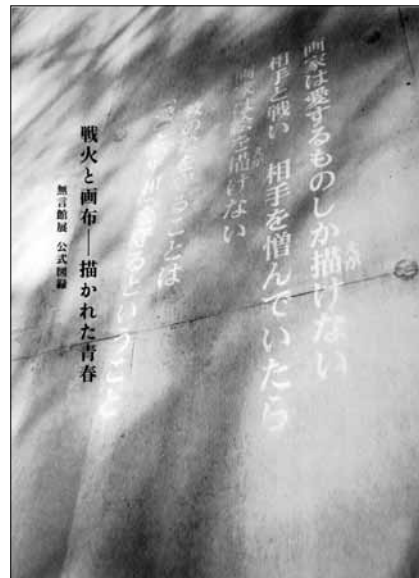 画家は愛するものしか描けない
相手と戦い 相手を憎んでいたら
画家は絵を描けない
ることは
るということ
戦火と画布――描かれた青春
無言館展 公式図録